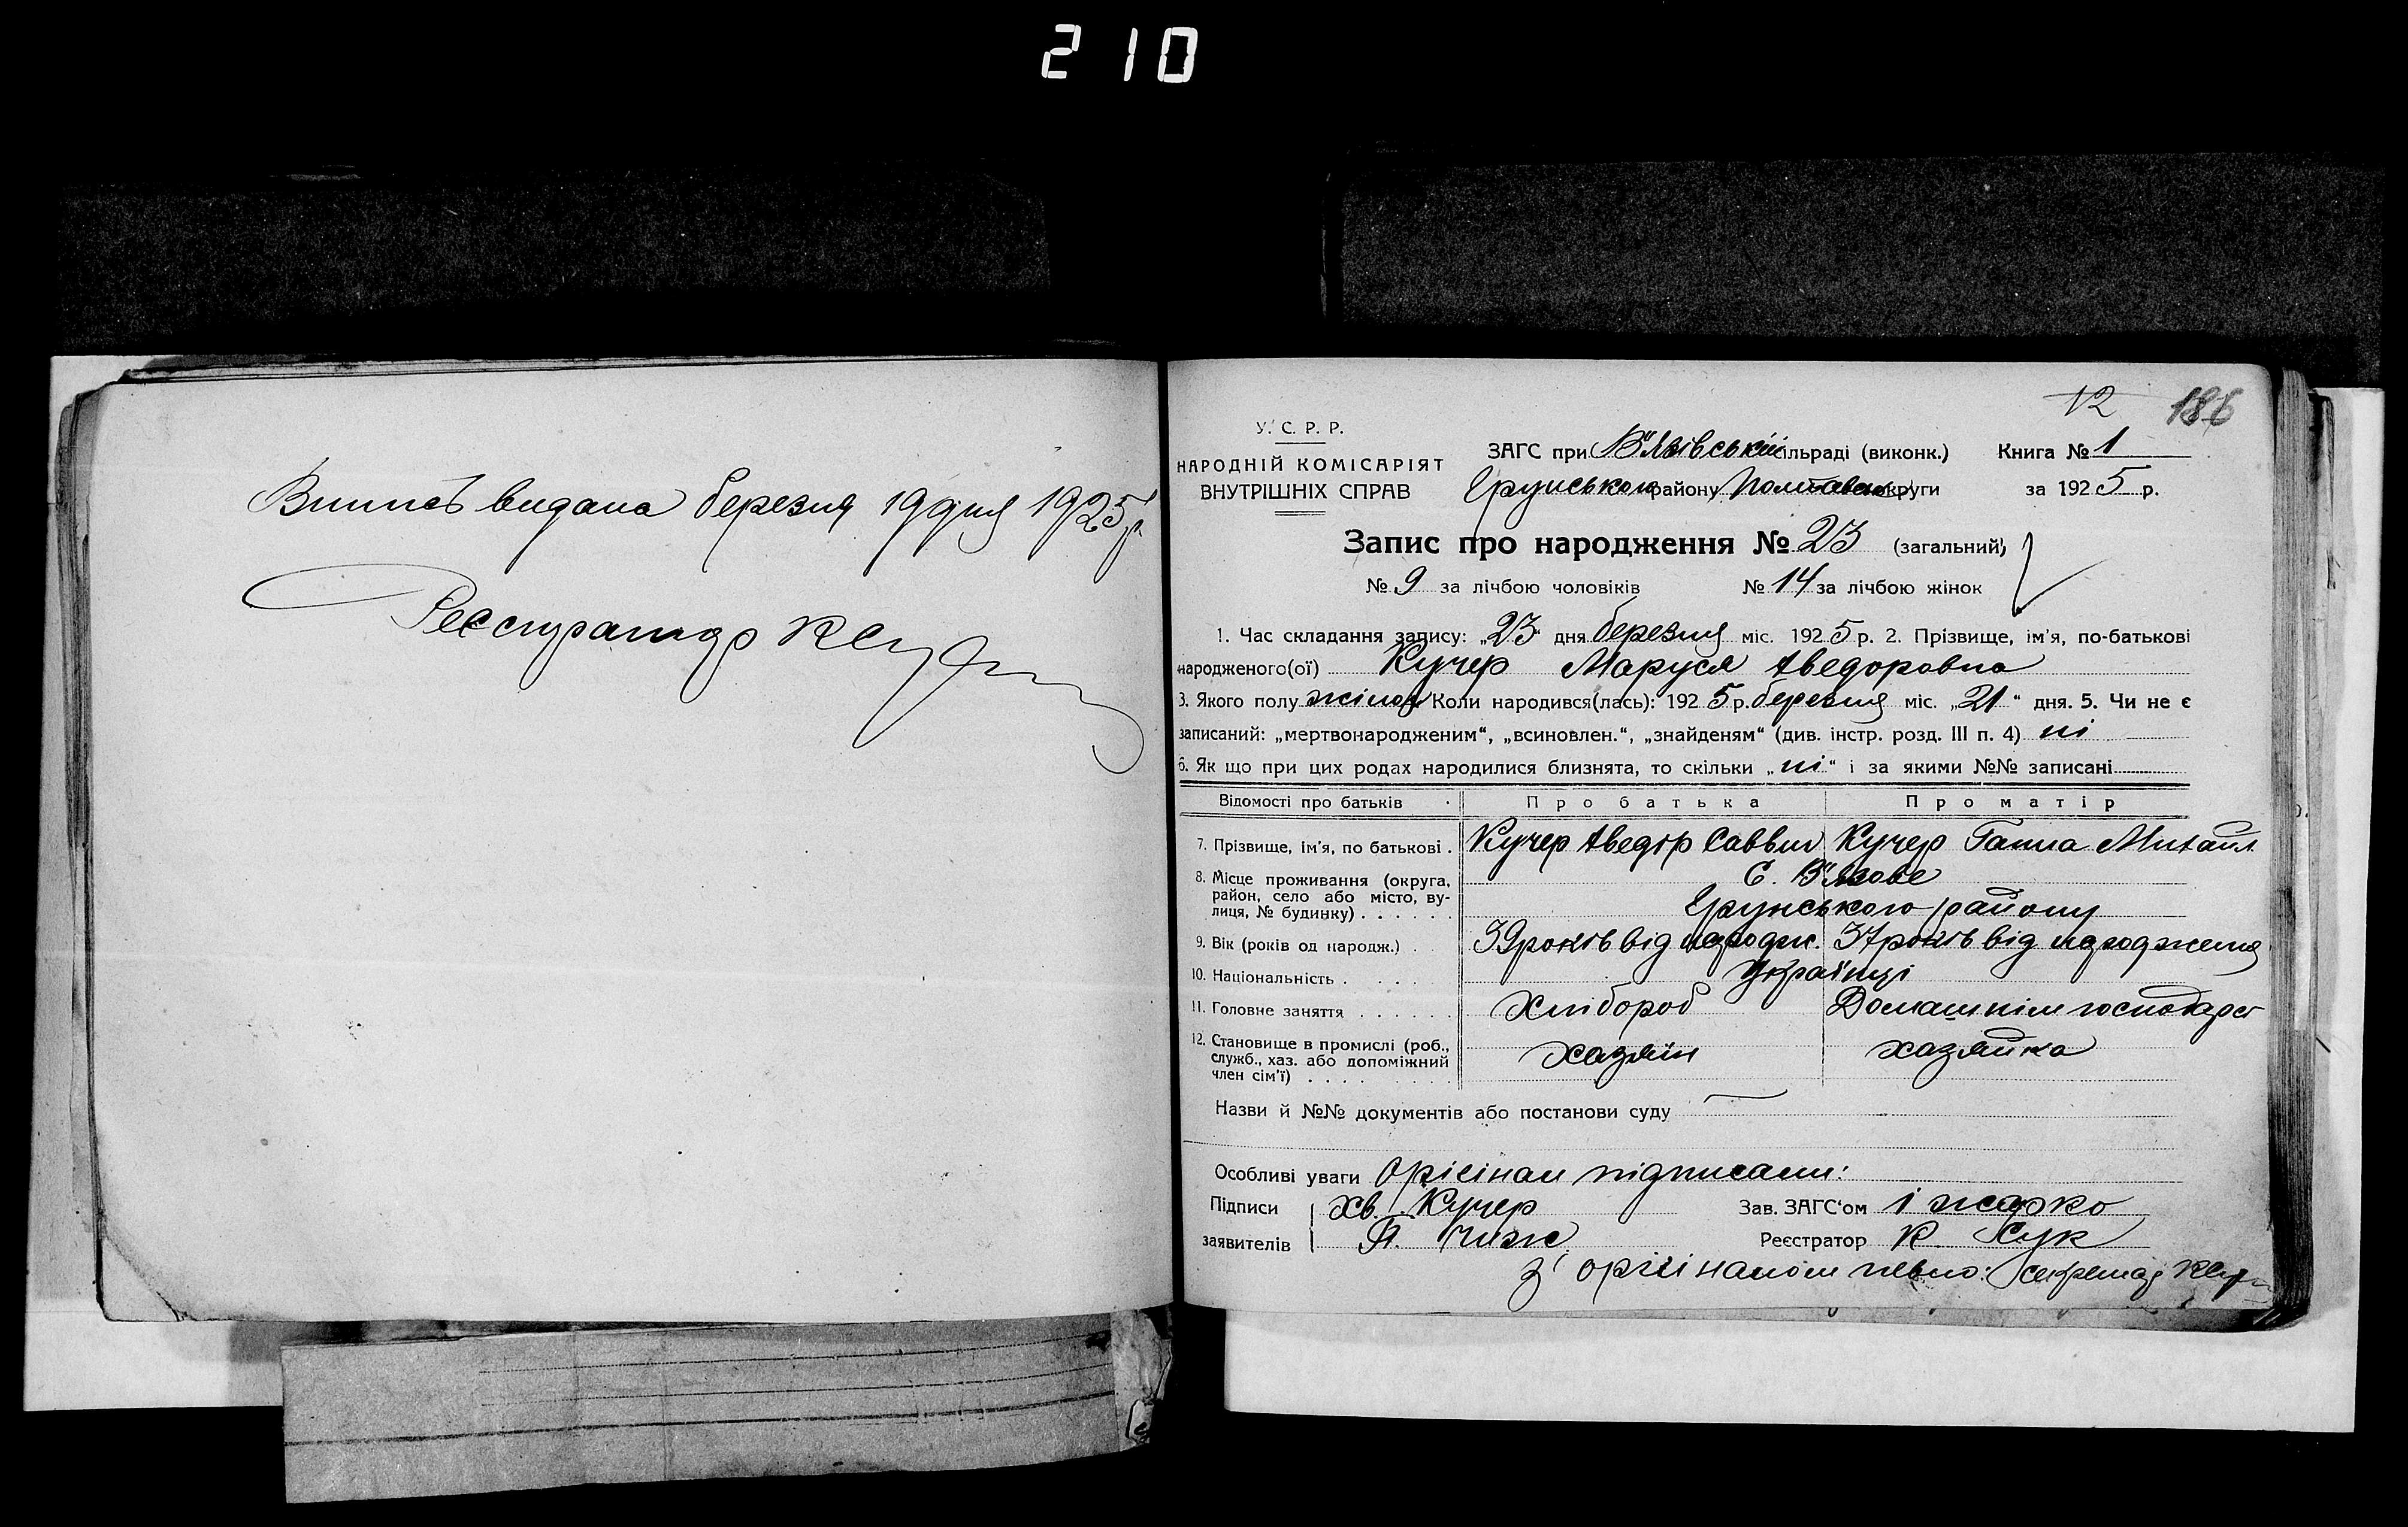 210
Випись видана березня 19 дня 1925 р.
Реєстратор
12 186
У. С. Р. Р.
НАРОДНІЙ КОМІСАРІЯТ
ВНУТРІШНІХ СПРАВ
ЗАГС при В'язівській сільраді (виконк.) Книга № 1
Грунського району Полтавськ округи за 1925 р.
Запис про народження № 23 (загальний)
№ 9 за лічбою чоловіків № 14 за лічбою жінок
1. Час складання запису: „23" дня березня міс. 1925 р. 2. Прізвище, ім'я, по-батькові
народженого(ої) Кучер Маруся Аведоровна
3. Якого полу жіноч Коли народився(лась): 1925 р. березня міс. „21" дня. 5. Чи не є
записаний: „мертвонародженим", „всиновлен.", „знайденям" (див. інстр. розд. III п. 4) ні
6. Як що при цих родах народилися близнята, то скільки „ні" і за якими №№ записані
Відомості про батьків Про батька Про матір
7. Прізвище, ім'я, по батькові . Кучер Аведір Саввич Кучер Ганна Михайл
8. Місце проживання (округа, С. В'язове
район, село або місто, ву-
лиця, № будинку) . . . . . . Грунського району
9. Вік (років од народж.) . 39 років від народж. 37 років від народження
10. Національність . . . . Українці
11. Головне заняття . . . . . . Хлібороб Домашнім господарст
12. Становище в промислі (роб., хазяїн хазяйка
служб., хаз. або допоміжний
член сім'ї) . . . . . . . . .
Назви й №№ документів або постанови суду
Особливі уваги Орігінал підписали:
Підписи Хв. Кучер Зав. ЗАГС'ом І Жадко
заявителів П. Чиж Реєстратор К. Сук
З' орігіналом певно: Секретарь